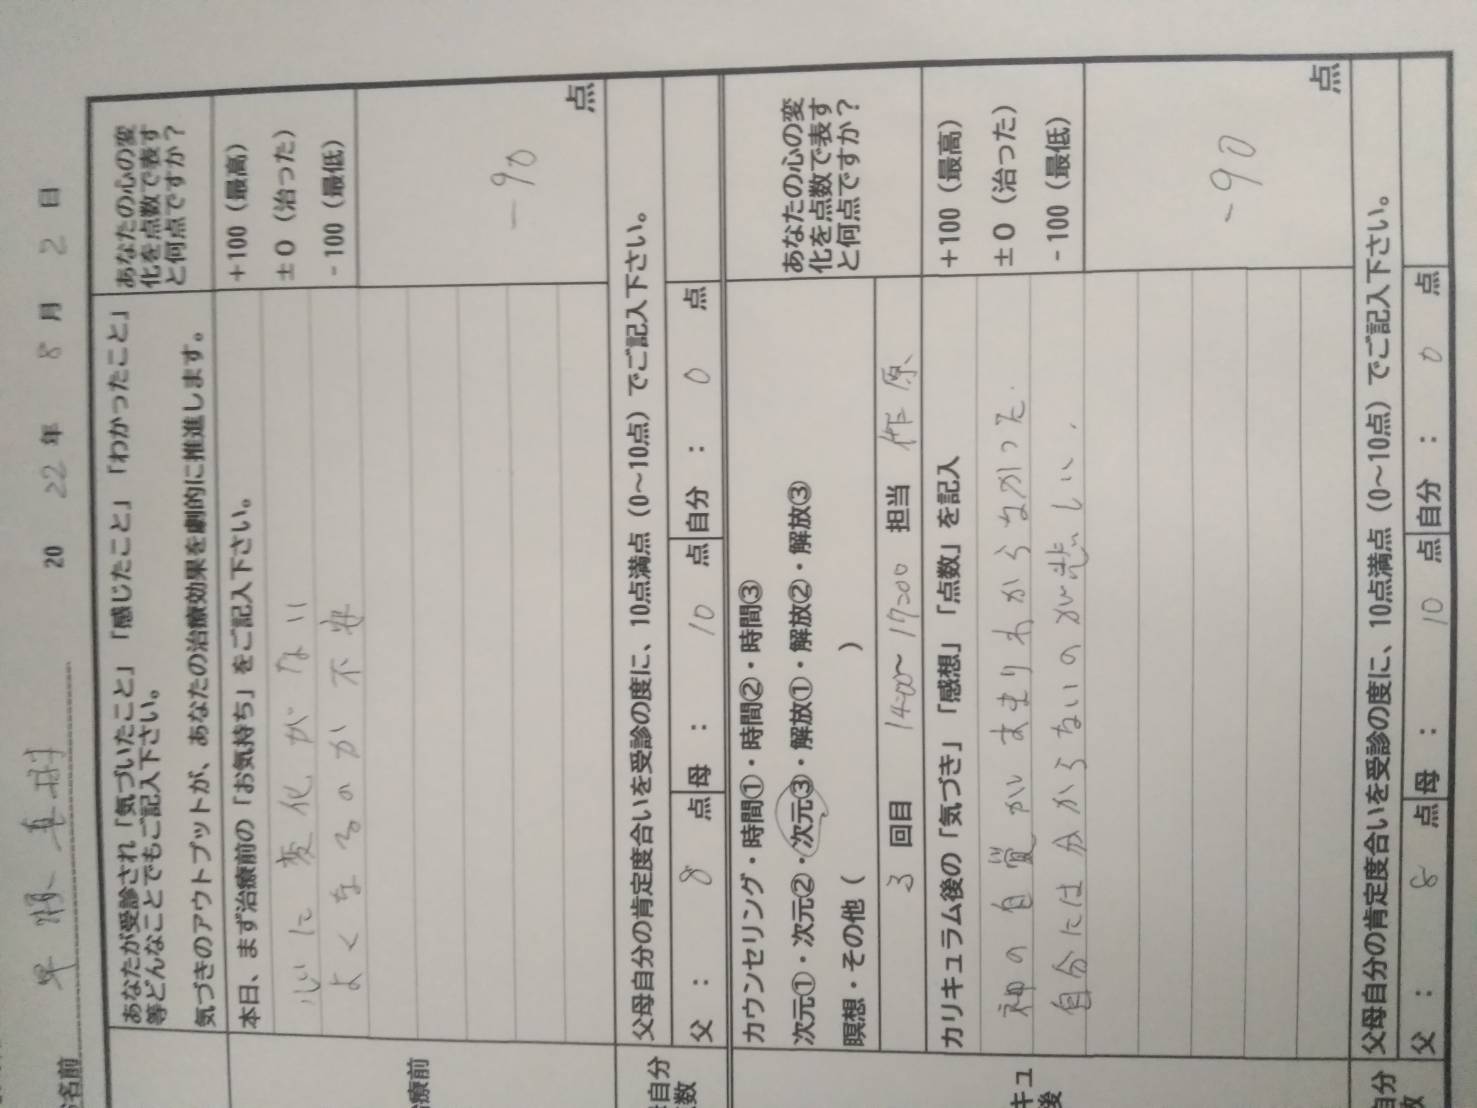 お名前 早瀬 真
20 22 年 8 月 2 日
あなたが受診され「気づいたこと」「感じたこと」「わかったこと」
等どんなことでもご記入下さい。
気づきのアウトプットが、あなたの治療効果を劇的に推進します。
あなたの心の変
化を点数で表す
と何点ですか？
本日、まず治療前の「お気持ち」をご記入下さい。
+100（最高）
±0（治った）
-100（最低）
心に変化がない
よくなるのか不安
-90
点
療前
父母自分の肯定度合いを受診の度に、10点満点（0～10点）でご記入下さい。
自分
数
父 ： 8 点 母 ： 10 点 自分 ： 0 点
カウンセリング・時間①・時間②・時間③
次元①・次元②・次元③・解放①・解放②・解放③
瞑想・その他（ ）
3 回目 14:00～17:00 担当 作原
あなたの心の変
化を点数で表す
と何点ですか？
キュ
後
カリキュラム後の「気づき」「感想」「点数」を記入
+100（最高）
±0（治った）
-100（最低）
神の自覚があまりわからなかった.
自分には分からないのが悲しい.
-90
点
父母自分の肯定度合いを受診の度に、10点満点（0～10点）でご記入下さい。
自分
父 ： 8 点 母 ： 10 点 自分 ： 0 点